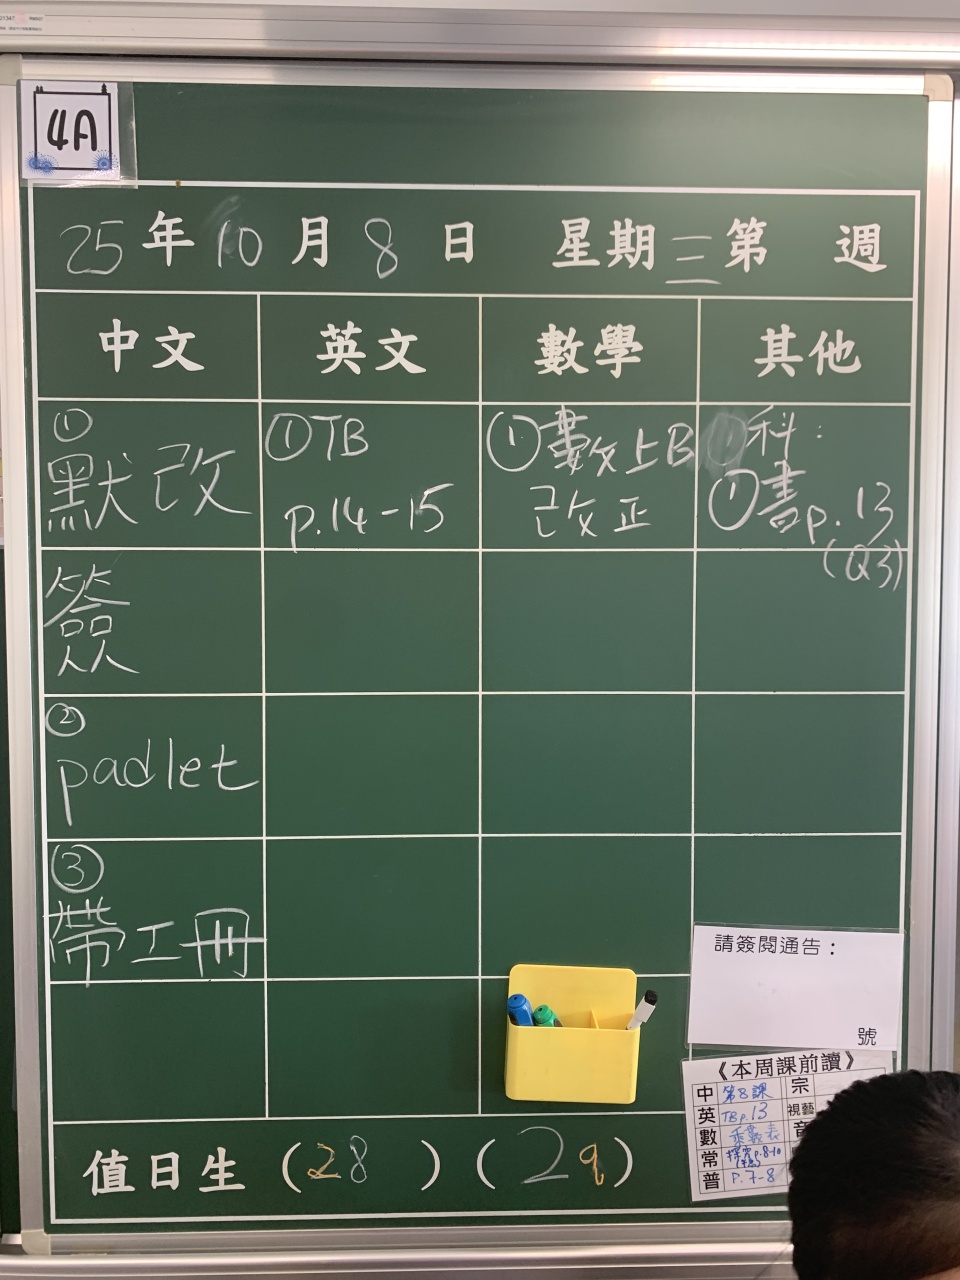 4A
25年10月8日 星期三第 週
中文 英文 數學 其他
①
默改
簽
②
padlet
③
帶工冊
①TB
p.14-15
①數上B
改正
科：
①書p.13
(Q3)
請簽閱通告：
號
《本周課前讀》
中 第8課 宗
英 TB p.13 視藝
數 乘數表 音
常 p.8-10
普 P.7-8
值日生 (28) (29)